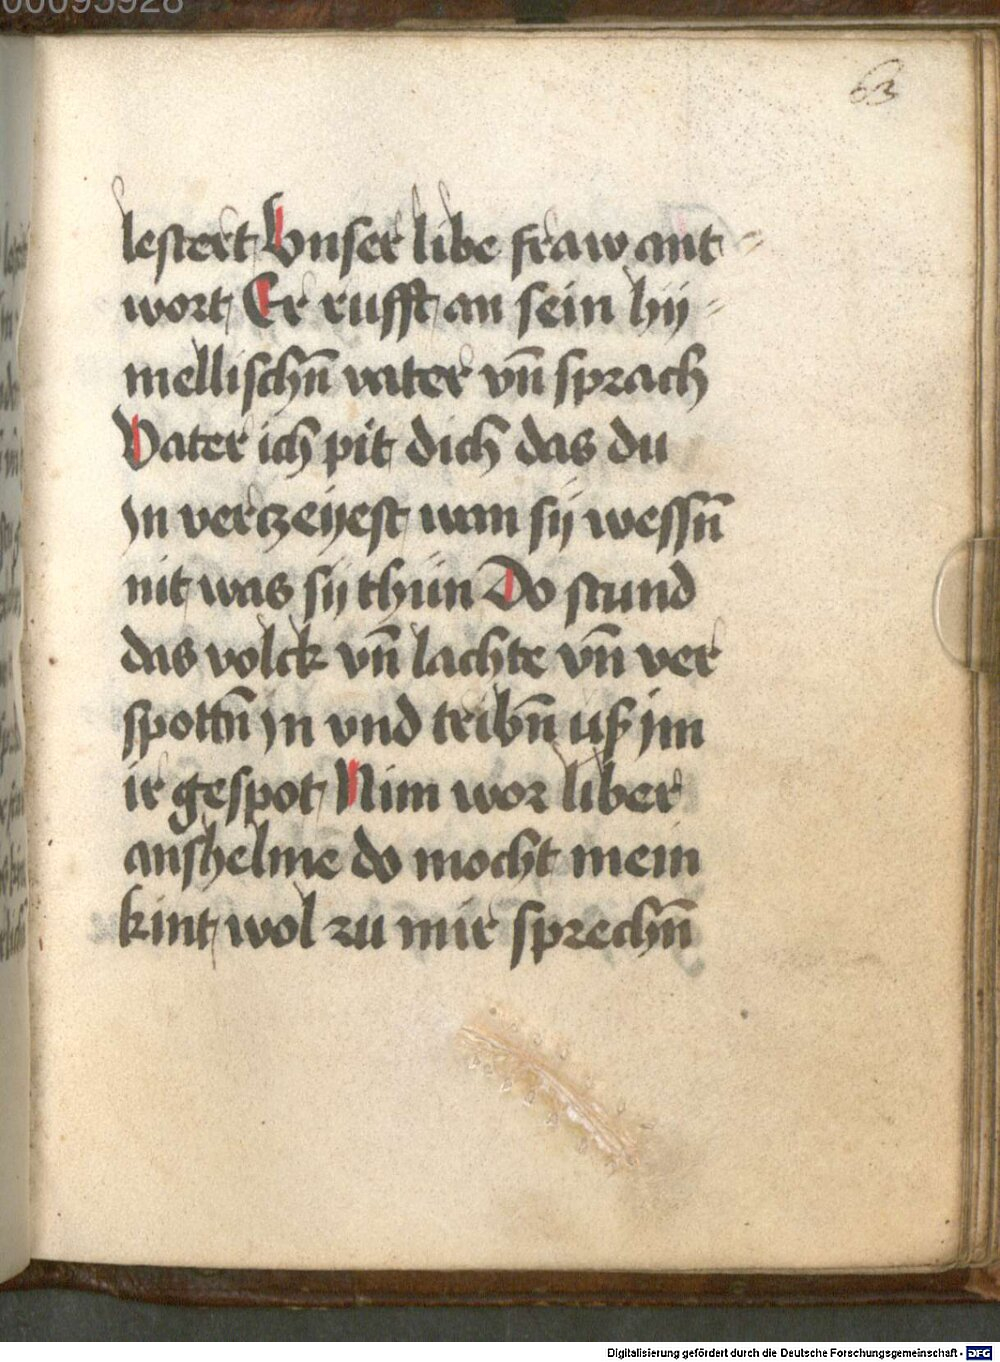 63
lestert Vnser libe fraw ant⸗
wort Er rufft an sein hy⸗
mellischn̄ vater vn̄ sprach
Vater ich pit dich das du
In verczeyest wan sy wessn̄
nit was sy thun Do stund
das volck vn̄ lachte vn̄ ver
spottn̄ In vnd tribn̄ uß im
ir gespot Nim wor liber
anshelme do mocht mein
kint wol zu mir sprechn̄
Digitalisierung gefördert durch die Deutsche Forschungsgemeinschaft - DFG